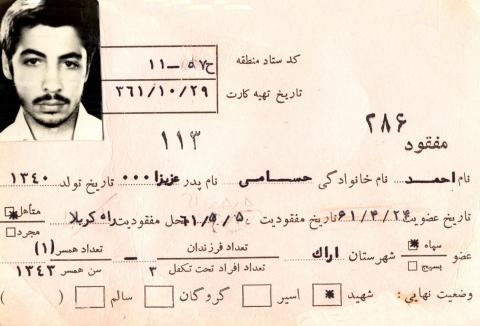 کد ستاد منطقه ح ۵۷ — ۱۱
تاریخ تهیه کارت ۳۶۱/۱۰/۲۹
۱۱۳
۲۸۶
مفقود
نام احمد نام خانوادگی حسامی نام پدر عزیزا۰۰۰ تاریخ تولد ۱۳۴۰
تاریخ عضویت ۶۱/۴/۲۴ تاریخ مفقودیت ۶۱/۵/۵ محل مفقودیت راه کربلا متأهل
مجرد
عضو سپاه شهرستان اراك تعداد فرزندان — تعداد همسر (۱)
بسیج تعداد افراد تحت تکفل ۳ سن همسر ۱۳۴۳
وضعیت نهایی: شهید * اسیر گروگان سالم ( )